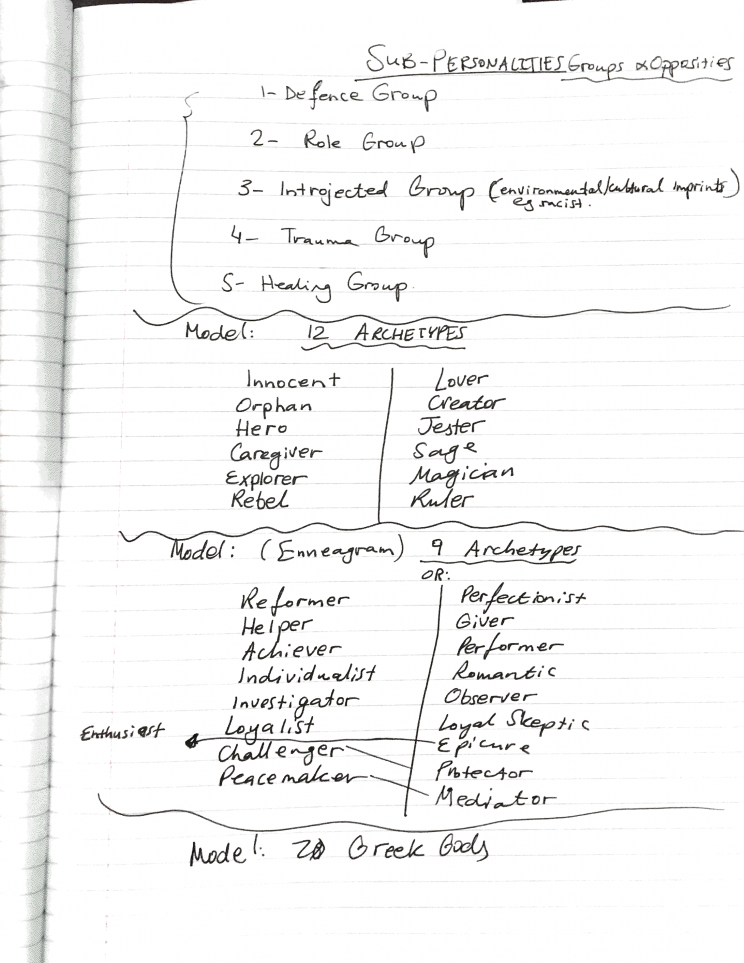 SUB-PERSONALITIES Groups & Opposities
1- Defence Group
2- Role Group
3- Introjected Group (environmental/cultural imprints)
eg racist.
4- Trauma Group
5- Healing Group
Model: 12 ARCHETYPES
Innocent Lover
Orphan Creator
Hero Jester
Caregiver Sage
Explorer Magician
Rebel Ruler
Model: (Enneagram) 9 Archetypes
OR:
Reformer Perfectionist
Helper Giver
Achiever Performer
Individualist Romantic
Investigator Observer
Loyalist Loyal Skeptic
Enthusiast Epicure
Challenger Protector
Peacemaker Mediator
Model: Greek Gods